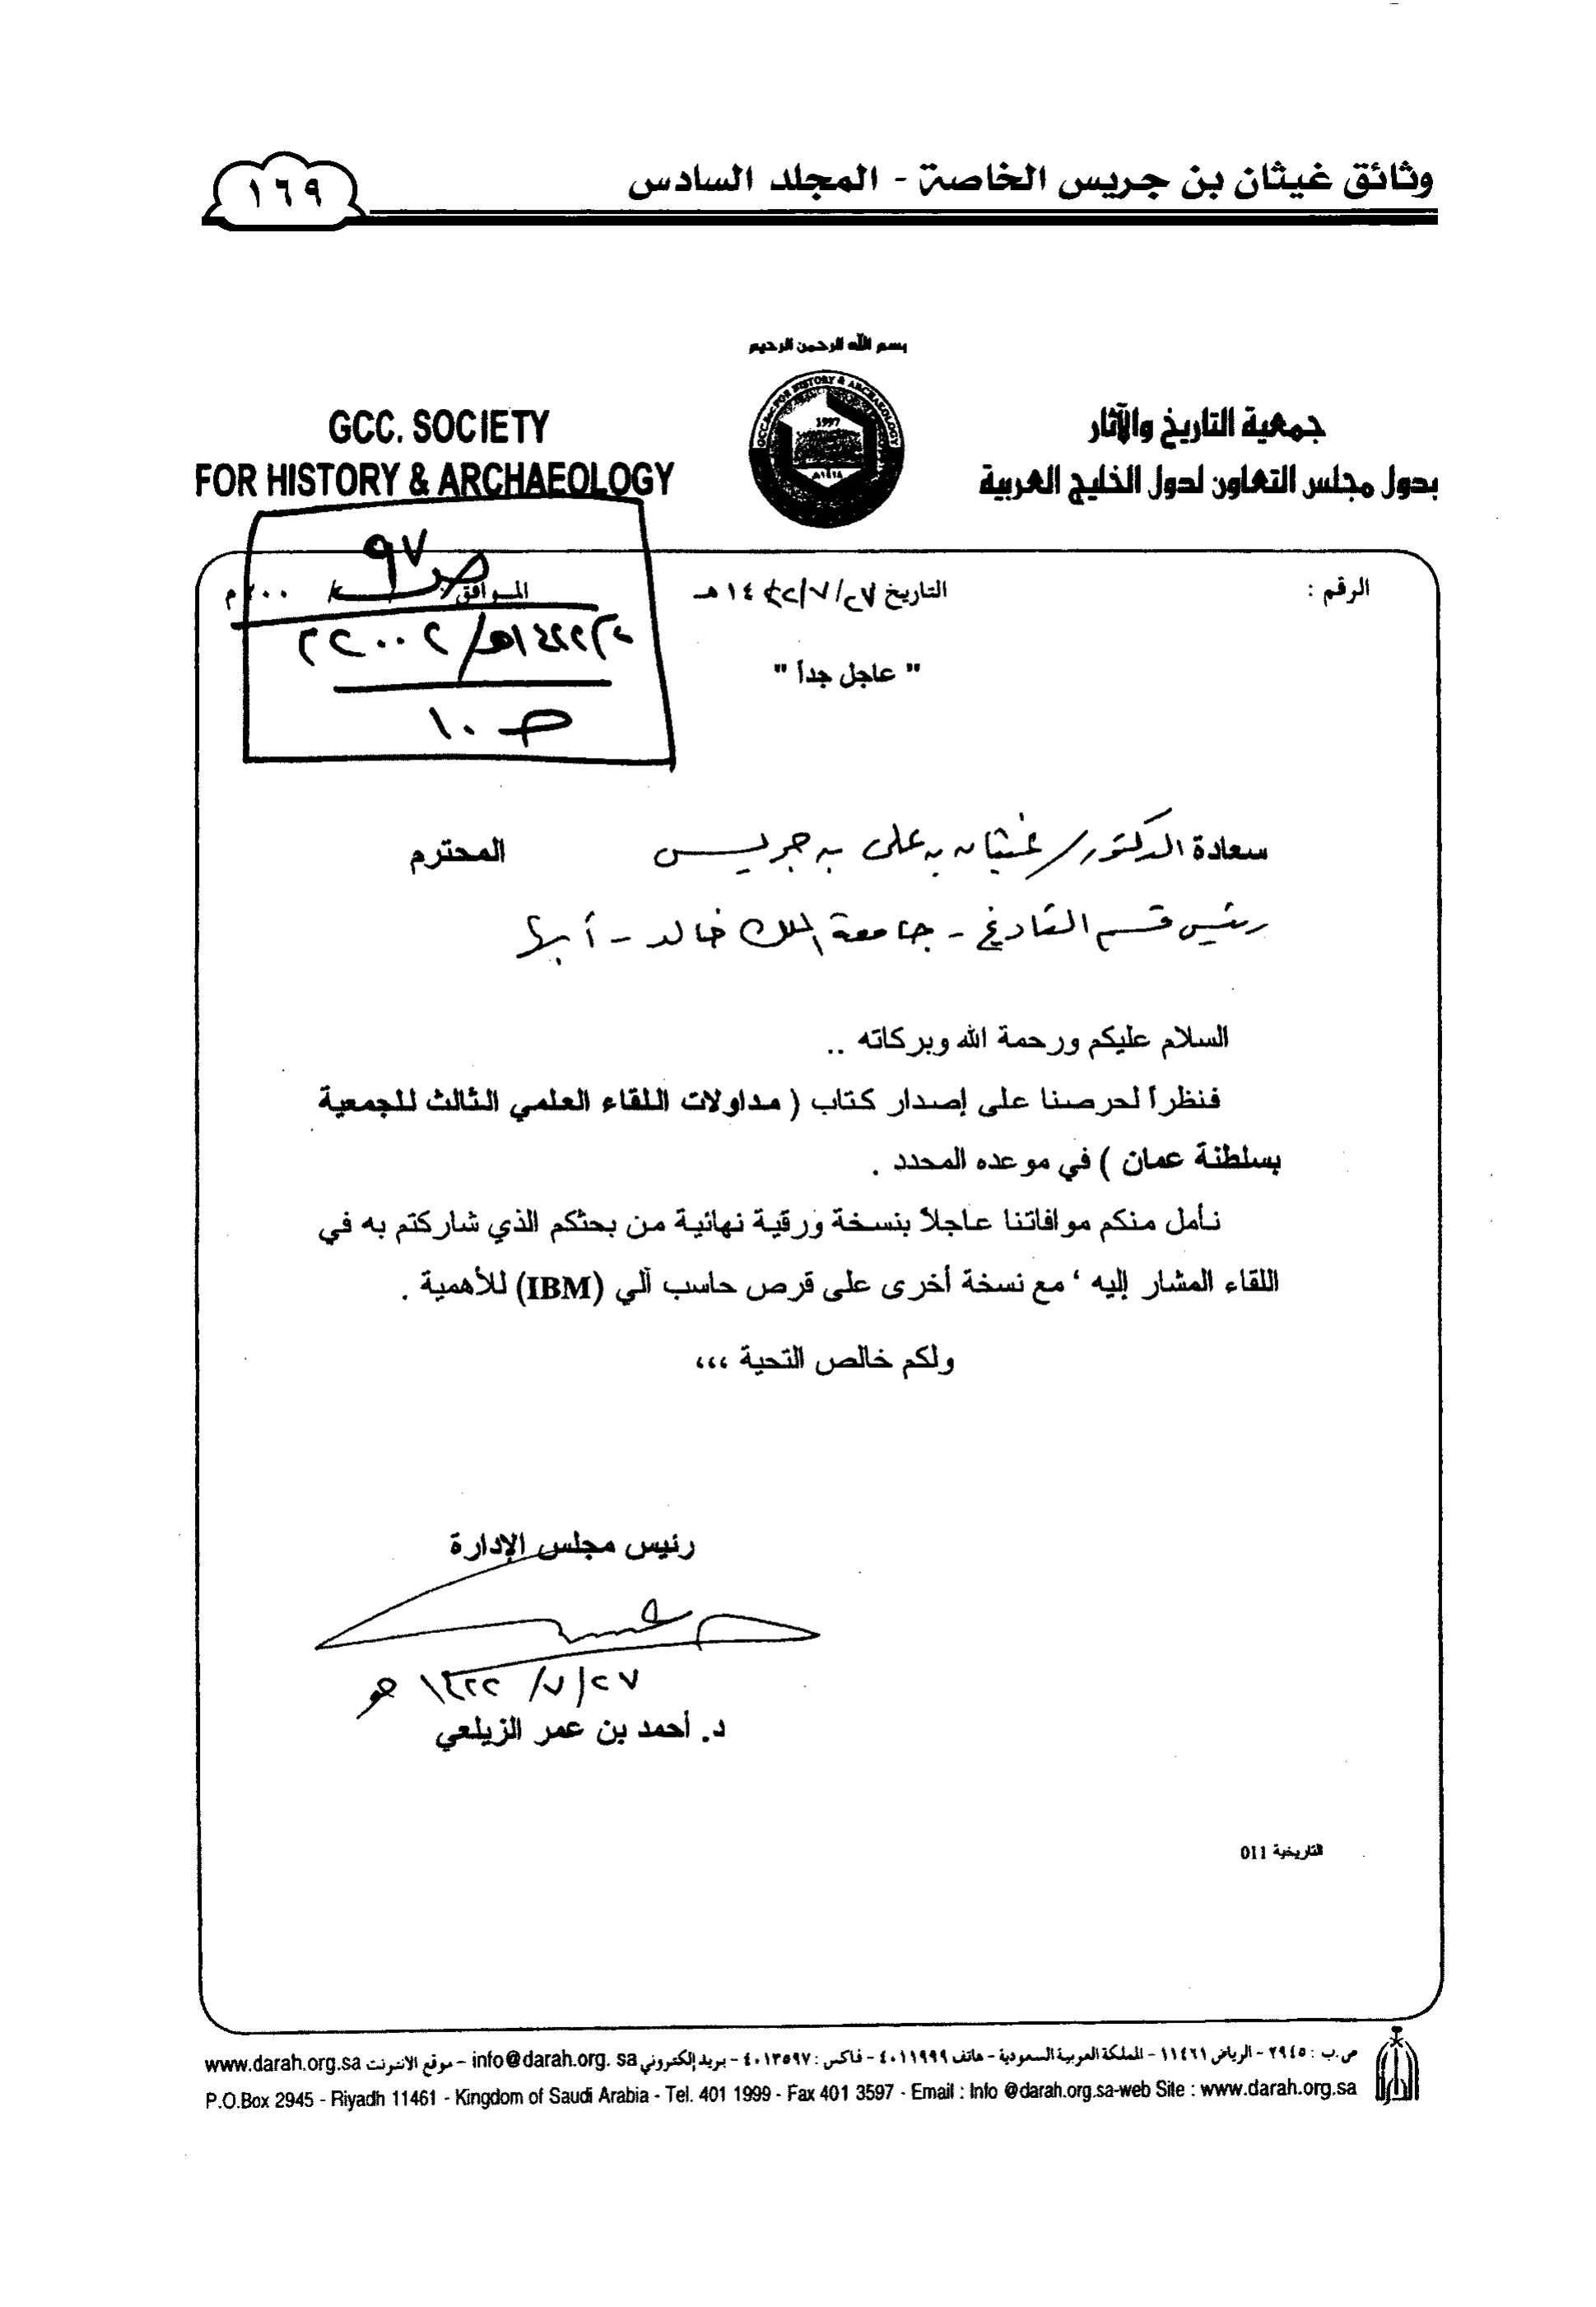 وثائق غيثان بن جريس الخاصة - المجلد السادس
١٦٩
بسم الله الرحمن الرحيم
GCC. SOCIETY
FOR HISTORY & ARCHAEOLOGY
GCC. Soc. FOR HISTORY & ARCHAEOLOGY
1997
١٤١٨هـ
جمعية التاريخ والآثار
بدول مجلس التعاون لدول الخليج العربية
الرقم :
التاريخ ٢٧/٧/١٤٢٢هـ
الموافق / / ٢٠٠م
ص ٩٧
١٤٢٢هـ/٢٠٠٢م
ص ١٠
" عاجل جداً "
سعادة الدكتور/ غيثان بن علي بن جريس المحترم
رئيس قسم التاريخ - جامعة الملك خالد - أبها
السلام عليكم ورحمة الله وبركاته ..
فنظراً لحرصنا على إصدار كتاب ( مداولات اللقاء العلمي الثالث للجمعية
بسلطنة عمان ) في موعده المحدد .
نأمل منكم موافاتنا عاجلاً بنسخة ورقية نهائية من بحثكم الذي شاركتم به في
اللقاء المشار إليه ‘ مع نسخة أخرى على قرص حاسب آلي (IBM) للأهمية .
ولكم خالص التحية ،،،
رئيس مجلس الإدارة
٢٧/٧/١٤٢٢هـ
د. أحمد بن عمر الزيلعي
التاريخية 011
ص.ب : ٢٩٤٥ - الرياض ١١٤٦١ - المملكة العربية السعودية - هاتف ٤٠١١٩٩٩ - فاكس : ٤٠١٣٥٩٧ - بريد إلكتروني info@darah.org. sa - موقع الانترنت www.darah.org.sa
P.O.Box 2945 - Riyadh 11461 - Kingdom of Saudi Arabia - Tel. 401 1999 - Fax 401 3597 - Email : Info @darah.org.sa-web Site : www.darah.org.sa